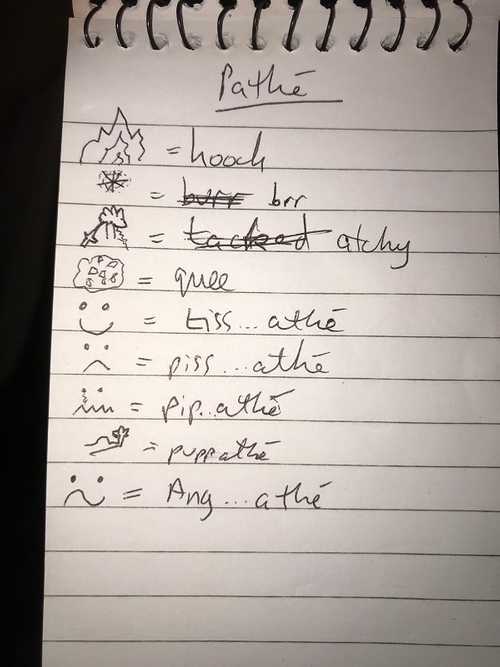 Pathé
= hooch
= burr brr
= tacked atchy
= quee
= tiss... athé
= piss... athé
= pip..athé
= puppathé
= Ang... athé